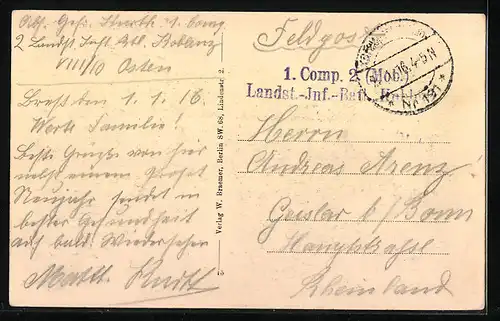 Abs. Gefr. 1. Comp
2 Landst. Inft. Btl. Koblenz
VIII/10 Osten
Brest den 1. 1. 16.
Werte Familie!
Beste Grüße von hier
nebst einem Proset
Neujahr sendet in
bester Gesundheit
auf bald Wiedersehen
Matth.
Verlag W. Braemer, Berlin SW. 68, Lindenstr. 2.
Feldpost
1. Comp. 2. (Mob.)
Landst.-Inf.-Batl.
16. 4-5 N
Herrn
Andreas Arenz
Geislar b/Bonn
Hauptstraße
Rheinland